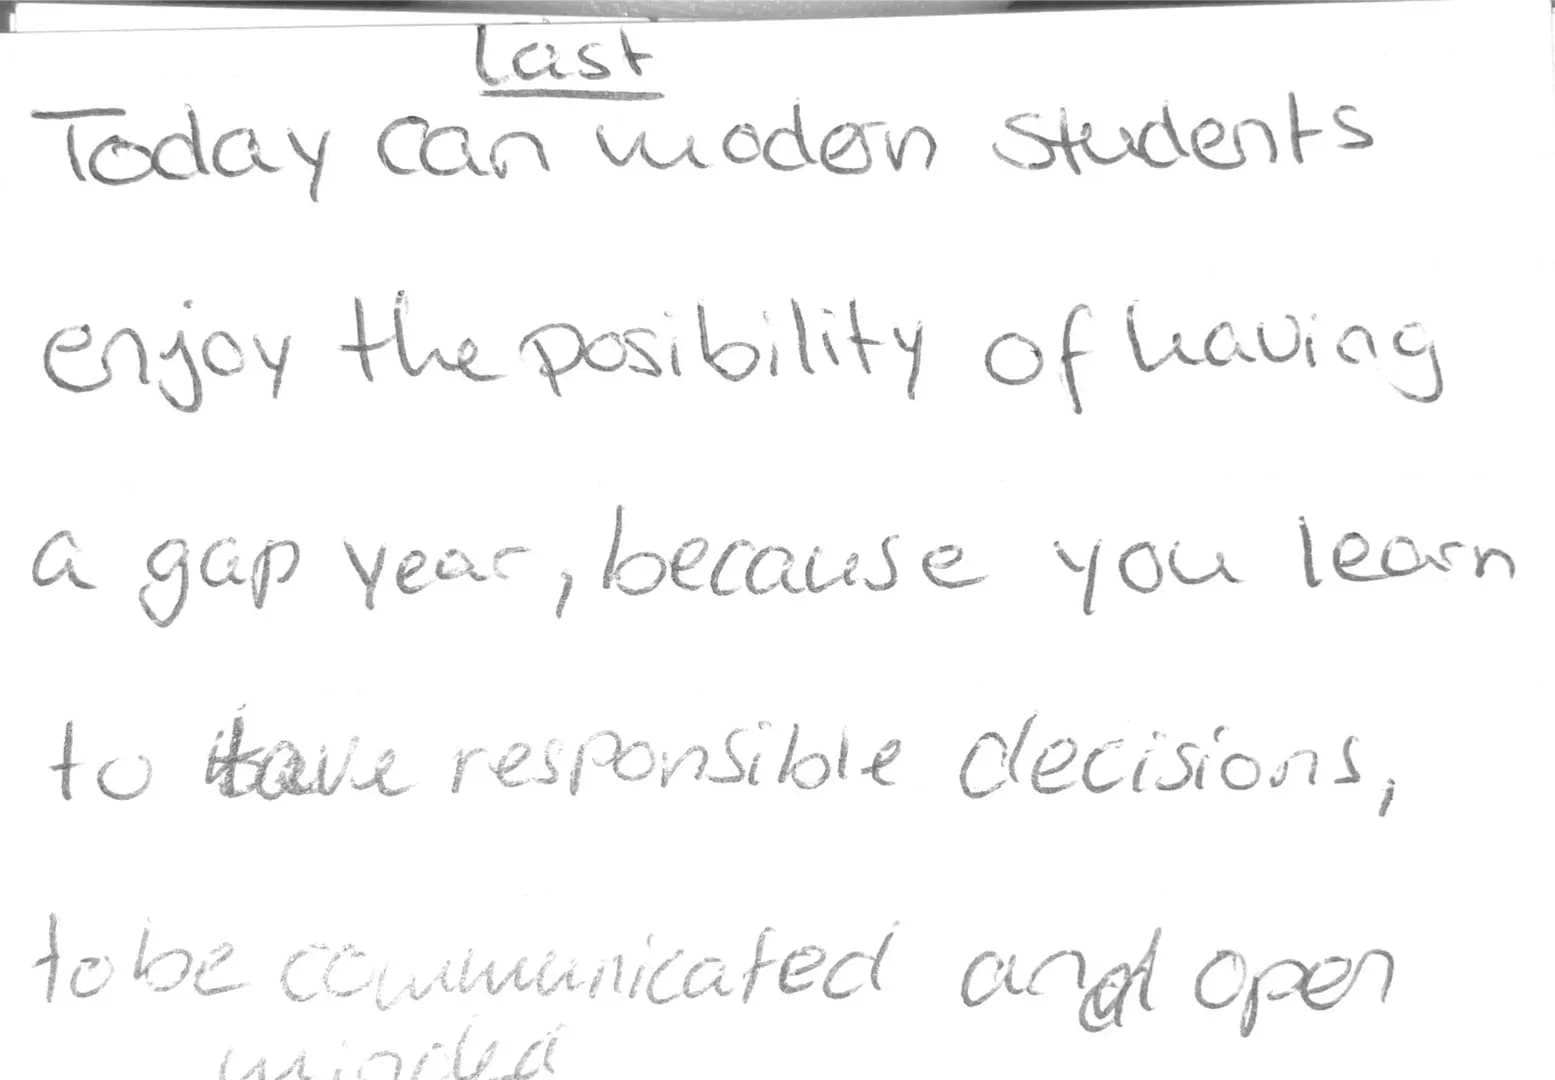 last
Today can modern students
enjoy the posibility of having
a gap year, because you learn
to have responsible decisions,
to be communicated and open
minded